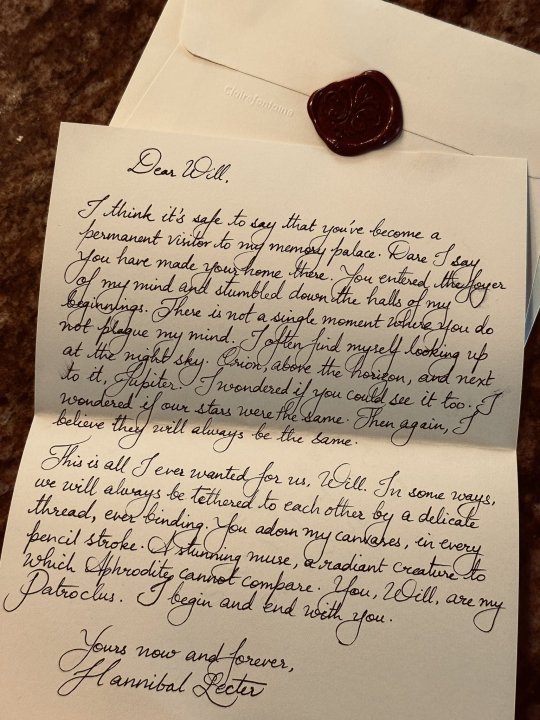 Clairefontaine
Dear Will,
I think it's safe to say that you've become a
permanent visitor to my memory palace. Dare I say
you have made your home there. You entered the foyer
of my mind and stumbled down the halls of my
beginnings. There is not a single moment where you do
not plague my mind. I often find myself looking up
at the night sky. Orion, above the horizon, and next
to it, Jupiter. I wondered if you could see it too. I
wondered if our stars were the same. Then again, I
believe they will always be the same.
This is all I ever wanted for us, Will. In some ways,
we will always be tethered to each other by a delicate
thread, ever binding. You adorn my canvases, in every
pencil stroke. A stunning muse, a radiant creature to
which Aphrodite cannot compare. You, Will, are my
Patroclus. I begin and end with you.
Yours now and forever,
Hannibal Lecter